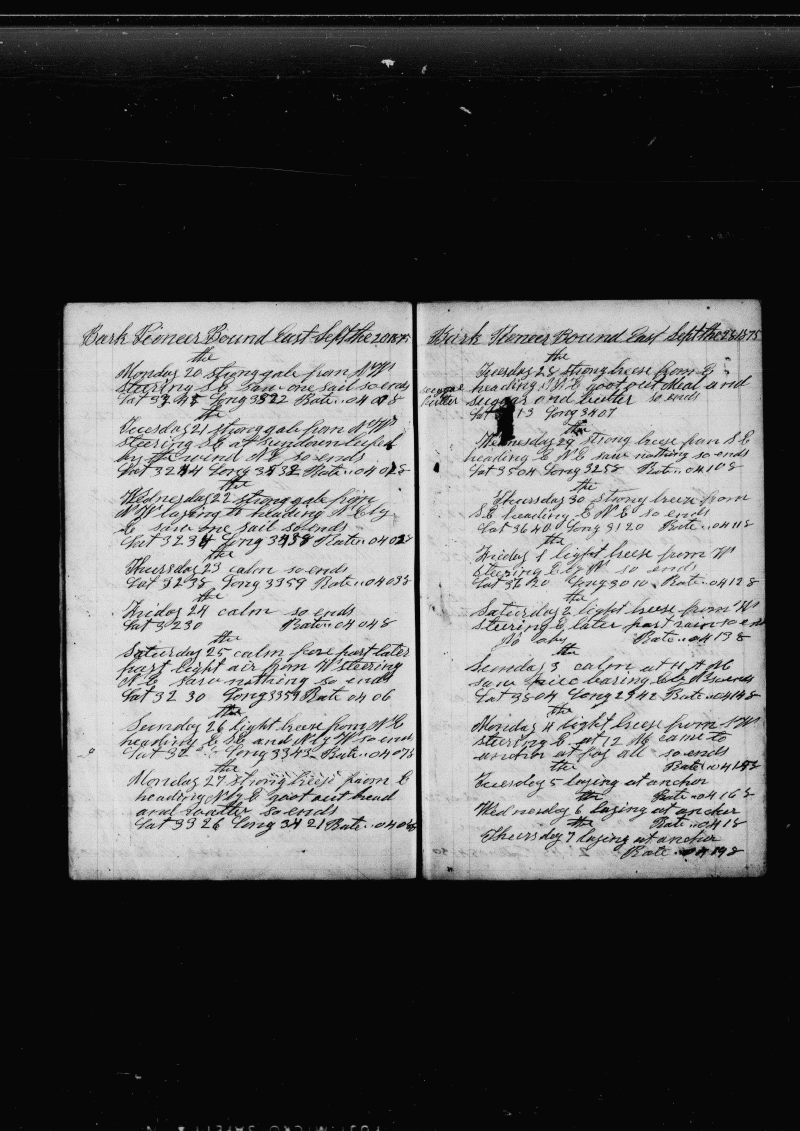 Bark Pioneer Bound East Sept the 20 1875
the
Monday 20 strong gale from NW
steering S E saw one sail so ends
Lat 32 45 Long 3822 Rate 04 008
the
Tuesday 21 strong gale from NW
steering SE at sundown luffed
by the wind NE so ends
Lat 3244 Long 3832 Rate 04 018
the
Wednesday 22 strong gale from
NW laying to heading N E by
E saw one sail so ends
Lat 3234 Long 3438 Rate 04028
the
Thursday 23 calm so ends
Lat 3238 Long 3359 Rate 04038
the
Friday 24 calm so ends
Lat 3230 Rate 04048
the
Saturday 25 calm fore part later
part light air from W steering
N E saw nothing so ends
Lat 32 30 Long 3359 Rate 04 06
the
Sunday 26 light breese from N E
heading E SE and N by W so ends
Lat 32 Long 3345 Rate 04078
the
Monday 27 strong breese from E
heading N by E goot out bread
and so ends
Lat 33 26 Long 3421 Rate 040
Bark Pioneer Bound East Sept the 28 1875
the
Tuesday 28 strong breese from E
heading N E goot out meal and
sugar and butter so ends
Lat 13 Long 3407
the
Wednesday 29 strong breese from S E
heading E N E saw nothing so ends
Lat 3504 Long 3258 Rate 04108
the
Thursday 30 strong breese from
S E heading E N E so ends
Lat 3640 Long 3120 Rate 04118
the
Friday 1 light breese from W
steering E by N so ends
Lat 3620 Long 3010 Rate 04128
the
Saturday 2 light breese from W
steering E later part rain so ends
No obs Rate 04138
the
Sunday 3 calm at 11 A M
saw Pico bearing so ends
Lat 3804 Long 2942 Rate 04148
the
Monday 4 light breese from S W
steering E at 12 M came to
anchor at fay all so ends
the Rate 04158
Tuesday 5 laying at anchor
the Rate 04168
Wednesday 6 laying at anchor
the Rate 0418
Thursday 7 laying at anchor
Rate 04198